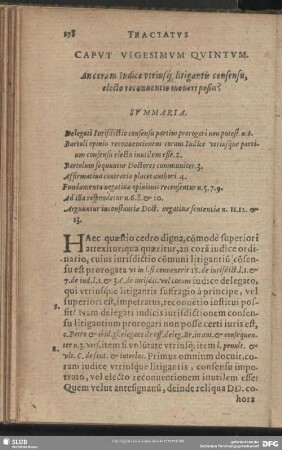 178 TRACTATVS
CAPVT VIGESIMVM QVINTVM.
An coram Iudice vtriusq; litigantiũ consensu,
electo reconuentio moueri possit?
SVMMARIA.
Delegati Iurisdictio consensu partium prorogari non potest. n.1.
Bartoli opinio reconuentionem coram Iudice vtriusque partium
consensu electo inutilem esse. 2.
Bartolum sequuntur Doctores communiter. 3.
Affirmatiua contraria placet authori. 4.
Fundamenta negatiuæ opinionis recensentur n. 5. 7. 9.
Ad illa respondetur n. 6. 8. & 10.
Arguuntur inconstantiæ Doct. negatiuæ sententiæ n. 11. 12. &
13.
HAec quæstio cedo digna, cõmodè superiori
attexitur, qua quæritur, an corã iudice ordinario,
cuius iurisdictio cõmuni litigantiũ cõsensu
est prorogata vt in l. si conuenerit 18. de iurisdict. l.1. &
7. de iud. l.1. & 3. C. de iurisdic. vel coram iudice delegato,
qui vtriusque litigantis suffragio à principe, vel
superiori est, impetratus, reconuetio institui possit?
Nam delegati iudicis iurisdictionem consensu
litigantium prorogari non posse certi iuris est,
1.
2.
Primus omnium docuit, coram
iudice vtriusque litigantis, consensu impetrato,
vel electo reconuentionem inutilem esse:
3.
Quem velut antesignanũ, deinde reliqua DD. cohors